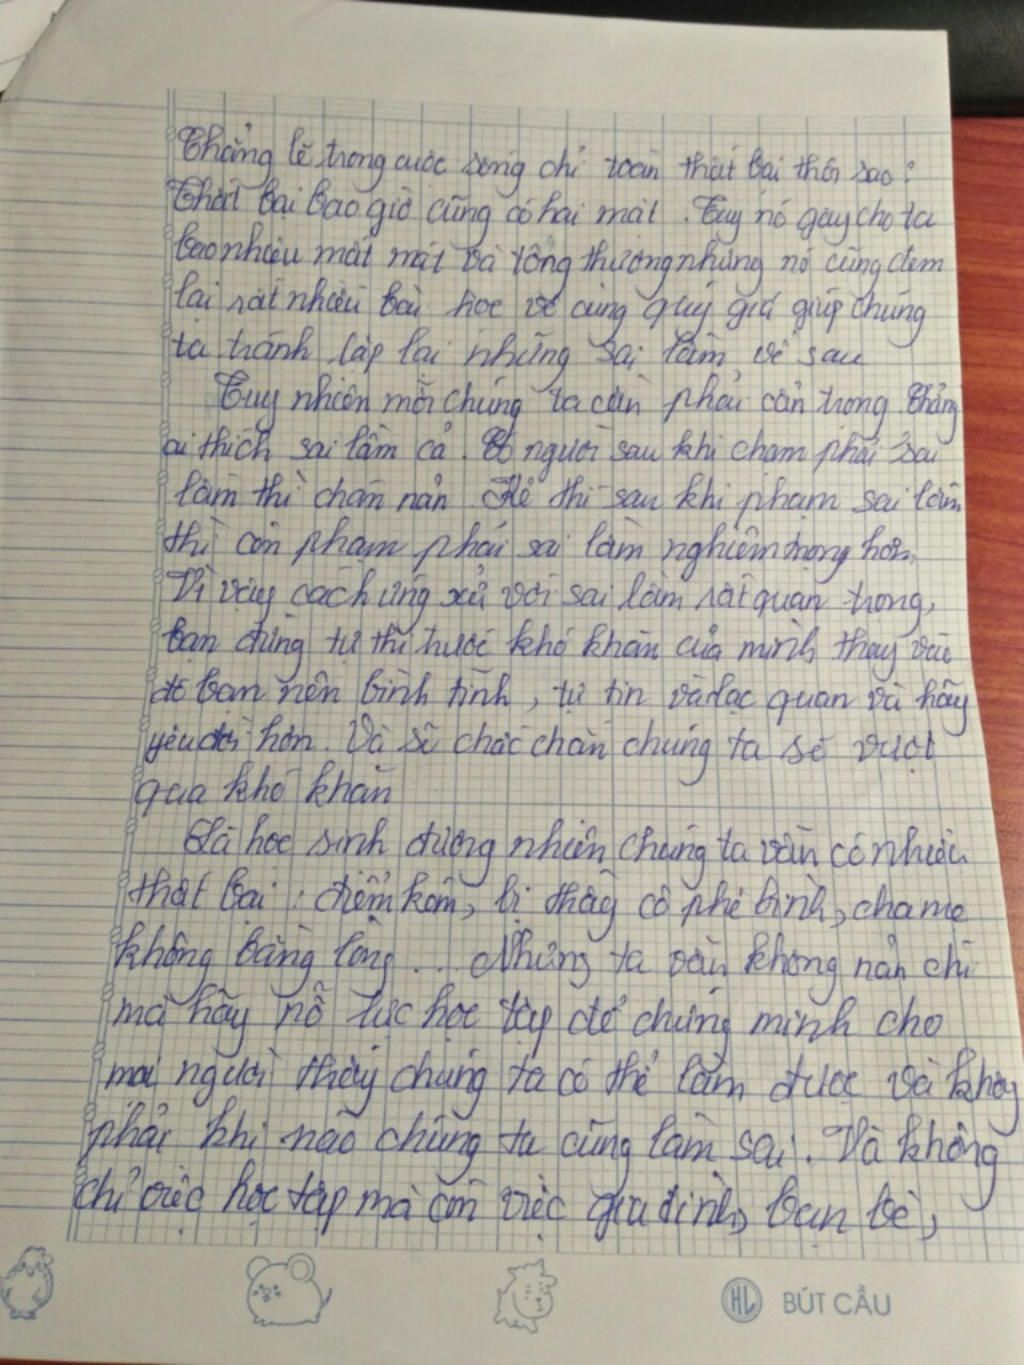 Chẳng lẽ trong cuộc sống chỉ toàn thất bại thôi sao?
Thất bại bao giờ cũng có hai mặt. Tuy nó gây cho ta
bao nhiêu mất mát và tổng thương nhưng nó cũng đem
lại rất nhiều bài học vô cùng quý giá giúp chúng
ta tránh lặp lại những sai lầm về sau
Tuy nhiên mỗi chúng ta cần phải cẩn trọng Chẳng
ai thích sai lầm cả. Có người sau khi chạm phải sai
lầm thì chán nản. Kẻ thì sau khi phạm sai lầm
thì còn phạm phải sai lầm nghiêm trọng hơn.
Vì vậy cách ứng xử với sai lầm rất quan trọng,
bạn đừng tự ti trước khó khăn của mình thay vào
đó bạn nên bình tĩnh, tự tin và lạc quan và hãy
yêu đời hơn. Và sẽ chắc chắn chúng ta sẽ vượt
qua khó khăn
Là học sinh đương nhiên chúng ta vẫn có nhiều
thất bại: điểm kém, bị thầy cô phê bình, cha mẹ
không bằng lòng... Nhưng ta vẫn không nản chí
mà hãy nỗ lực học tập để chứng minh cho
mọi người thấy chúng ta có thể làm được và không
phải khi nào chúng ta cũng làm sai. Và không
chỉ việc học tập mà còn việc gia đình, bạn bè,
HL BÚT CẦU